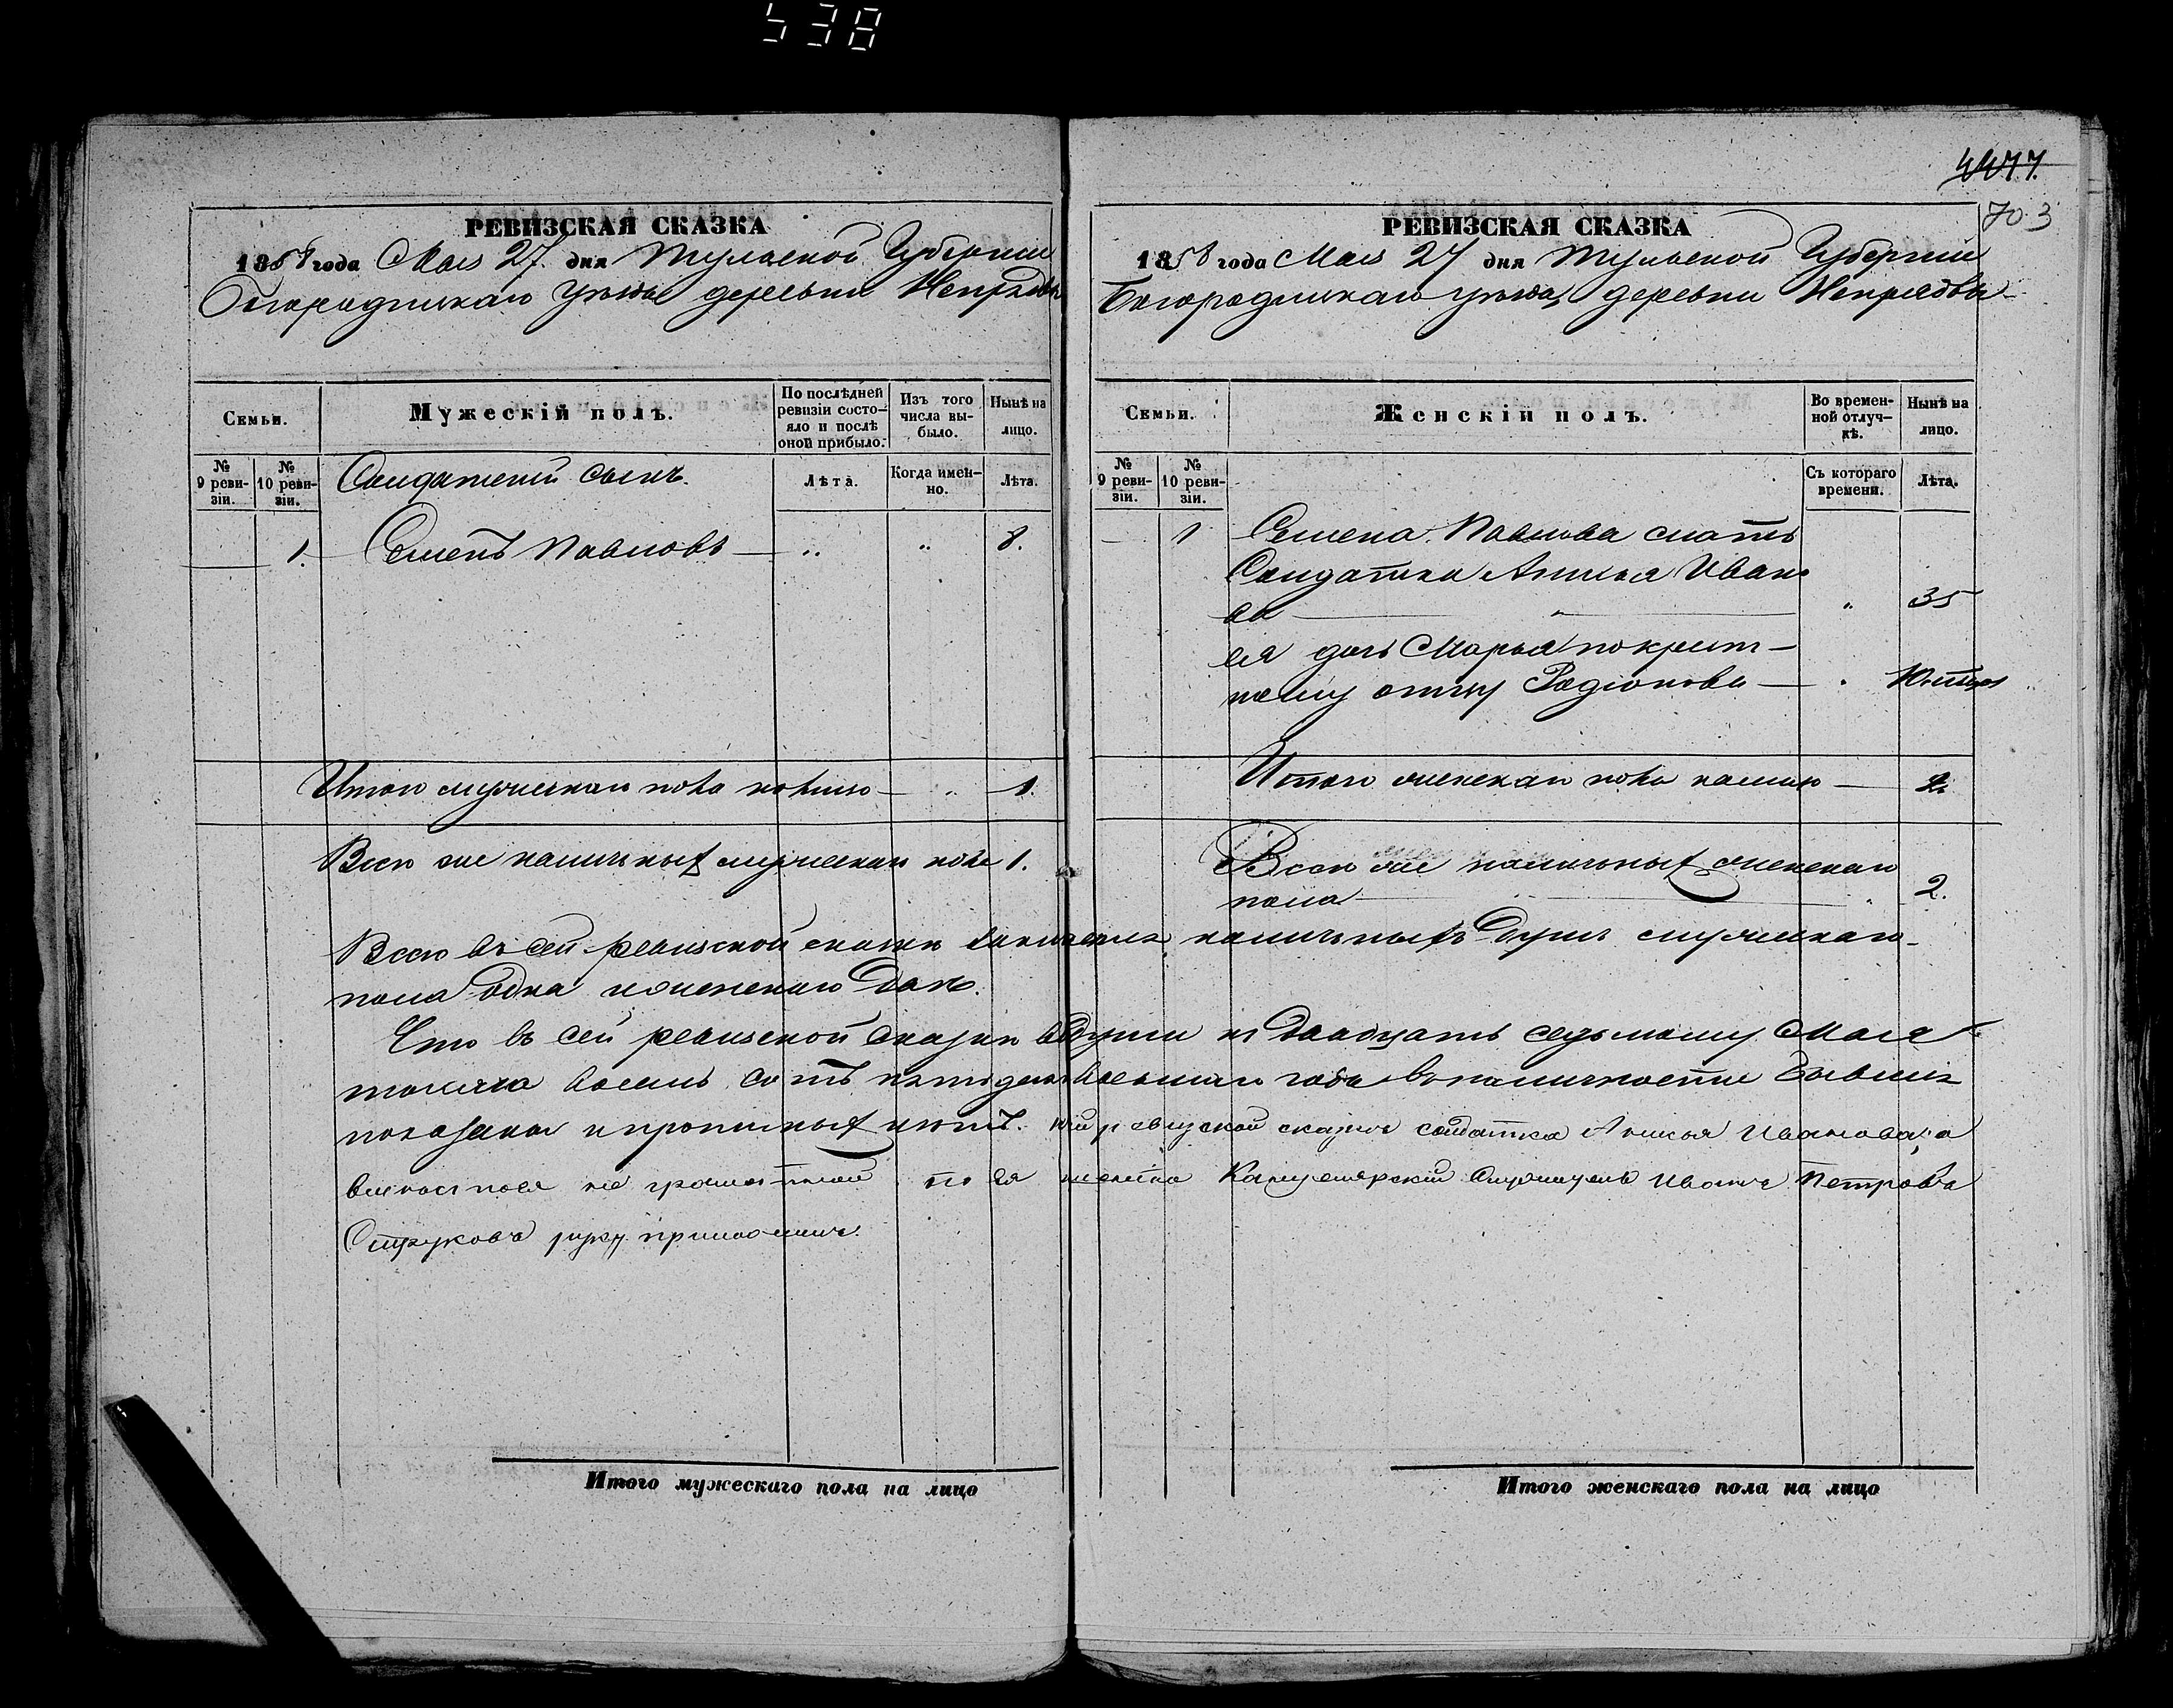 538
4477.
703
РЕВИЗСКАЯ СКАЗКА
1858 года Мая 27. дня Тульской Губернии
Богородицкаго уѣзда деревни Непрядвы
Семьи.
Мужескій полъ.
По послѣдней ревизіи состо-
яло и послѣ
оной прибыло.
Изъ того
числа вы-
было.
Нынѣ на
лицо.
№
9 реви-
зіи.
№
10 реви-
зіи.
Солдатскій сынъ.
Лѣта.
Когда имен-
но.
Лѣта.
1. Семенъ Павловъ — „ „ 8.
Итого мужескаго пола налицо — „ 1.
Всего же наличныхъ мужескаго пола 1.
РЕВИЗСКАЯ СКАЗКА
1858 года Мая 27 дня Тульской Губерніи
Богородицкаго уѣзда деревни Непрядвы
Семьи.
Женскій полъ.
Во времен-
ной отлуч-
кѣ.
Нынѣ на
лицо.
№
9 реви-
зіи.
№
10 реви-
зіи.
Съ котораго
времени.
Лѣта.
— 1 Семена Павлова мать
Солдатка Анисья Ивано
ва — „ 35
ея дочь Марья по крест-
ному отцу Родіонова — „
Итого женскаго пола налицо — 2.
Всего же наличныхъ женскаго
пола — „ 2.
Всего въ сей ревизской сказкѣ наличныхъ душъ мужескаго
пола одна и женскаго двѣ.
Что въ сей ревизской сказкѣ всѣ души къ двадцать седьмому Мая
тысяча восемь сотъ пятьдесятъ восьмаго года въ наличности бывшія
показаны и прописныхъ нѣтъ. Къ сей ревизской сказкѣ солдатка Анисья Иванова, а
вмѣсто нея не грамотной по ея Канцелярскій Служитель Иванъ Петровъ
Струковъ руку приложилъ.
Итого мужескаго пола на лицо
Итого женскаго пола на лицо